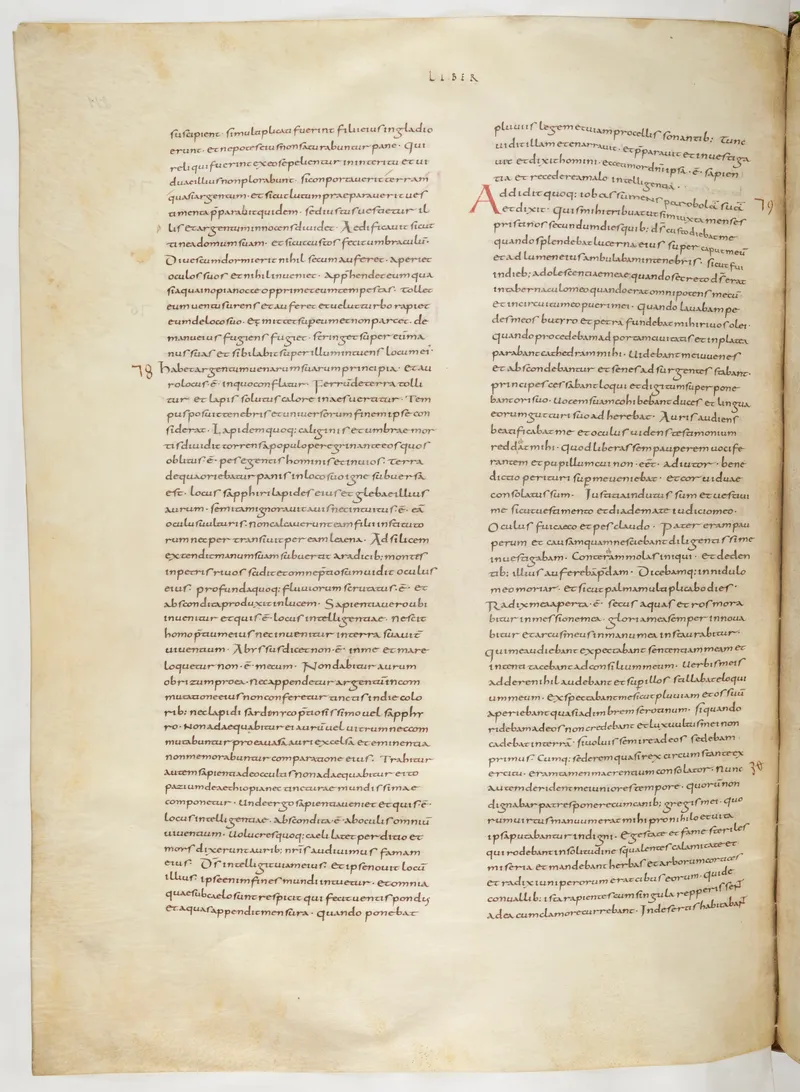 LIBER
suscipient · si multiplicati fuerint filii eius in gladio
erunt · et nepotes eius non saturabuntur pane · Qui
reliqui fuerint ex eo sepelientur in interitu et ui
duae illius non plorabunt · si conportauerit terram
quasi argentum · et sicut lutum praeparauerit ues
amenta pparabit quidem · sed iustus uestietur il
lis et argentum innocens diuidet · Aedificauit sicut
tinea domum suam · et sicut custos fecit umbraculū ·
Diues cum dormierit nihil secum auferet · Aperiet
oculos suos et nihil inueniet · Apphendet eum qua
si aqua inopia nocte opprimet eum tempestas · tollet
eum uentus urens et auferet et uelut turbo rapiet
eum de loco suo · et mittet super eum et non parcet · de
manu eius fugiens fugiet · stringet super eū ma
nus suas et sibilabit super illum intuens locum ei ·
28 Habet argentum uenarum suarum principia · et au
ro locus · ē · in quo conflatur · Ferrū de terra tolli
tur · et lapis solutus calore in aes uertatur · Tem
pus posuit tenebris et uniuersorum finem ipse con
siderat · Lapidem quoq: caliginis et umbrae mor
tis diuidit torrens a populo peregrinante eos quos
oblitus · ē · pes egentis hominis et inuios · terra
de qua oriebatur panis in loco suo igne subuersa
est · locus sapphiri lapides eius et glebae illius
aurum · semitam ignorauit auis nec intuitus · ē · eā
oculus uulturis · non calcauerunt eam filii institoto
rum nec pertransiuit per eam laena · Ad silicem
extendit manum suam subuertit a radicib; montes
in petris riuos scidit et omne ptiosum uidit oculus
eius · profunda quoq: fluuiorum scrutatus · ē · et
abscondita produxit in lucem · Sapientia uero ubi
inuenitur et quis · ē · locus intellegentiae · nescit
homo ptium eius nec inuenitur in terra suauit
uiuentium · Abyssus dicit non · ē · in me et mare
loquetur non · ē · mecum · Non dabitur aurum
obrizum pro ea · nec appendetur argentū in com
mutatione eius non conferetur tinctis indie colo
rib: nec lapidi sardonyco ptiosissimo uel sapphy
ro · Non adaequabitur ei aurū uel uitrum nec com
mutabuntur pro ea uasa auri excelsa et eminentia
non memorabuntur comparatione eius · Trahitur
autem sapientia de occultis non adaequabitur ei to
pazium de aethiopia nec tincturae mundissimae
componetur · Unde ergo sapientia ueniet et quis · ē ·
locus intellegentiae · Abscondita · ē · ab oculis omniū
uiuentium · uolucres quoq: caeli latet perditio et
mors dixerunt aurib: nrīs audiuimus famam
eius · Ds intelligit uiam eius · et ipse nouit locū
illius · ipse enim fines mundi intuetur · et omnia
quae sub caelo sunt respicit qui fecit uentis pondus
et aquas appendit mensura · quando ponebat
pluuiis legem et uiam procellis sonantib; Tunc
uidit illam et enarrauit · et pparauit et inuestiga
uit et dixit homini · ecce timor dni ipsa · ē · sapien
tia et recedere a malo intelligentia ·
29 Addidit quoq: iob assumens parabolā suā
et dixit · Quis mihi tribuat ut sim iuxta menses
pristinos secundum dies quib; ds̄ custodiebat me
quando splendebat lucerna eius super caput meū
et ad lumen eius ambulabam in tenebris · sicut fui
in dieb; adolescentiae meae quando secreto ds̄ erat
in tabernaculo meo quando erat omnipotens mecū ·
et in circuitu meo pueri mei · quando lauabam pe
des meos butyro et petra fundebat mihi riuos olei ·
quando procedebam ad portam ciuitatis et in platea
parabant cathedram mihi · Uidebant me iuuenes
et abscondebantur et senes adsurgentes stabant ·
principes cessabant loqui et digitum superpone
bant ori suo · Uocem suam cohibebant duces et lingua
eorum gutturi suo adherebat · Auris audiens
beatificabat me et oculus uidens testimonium
reddebat mihi · Quod liberassem pauperem uocife
rantem et pupillum cui non · eēt · adiutor · bene
dictio perituri sup me ueniebat · et cor uiduae
consolatus sum · Iustitia indutus sum et uestiui
me sicut uestimento et diademate iudicio meo ·
Oculus fui caeco et pes claudo · Pater eram pau
perum et causam quam nesciebam diligentissime
inuestigabam · Conterebam molas iniqui · et de den
tib: illius auferebā pdam · Dicebamq: in nidulo
meo moriar · et sicut palma multiplicabo dies ·
Radix mea aperta · ē · secus aquas et ros mora
bitur in messione mea · gloria mea semper innoua
bitur et arcus meus in manu mea instaurabitur ·
qui me audiebant expectabant sententiam meam et
intenti tacebant ad consilium meum · Uerbis meis
addere nihil audebant et sup illos stillabat eloqui
um meum · expectabant me sicut pluuiam et os suū
aperiebant quasi ad imbrem serotinum · si quando
ridebam ad eos non credebant et lux uultus mei non
cadebat in terrā · si uoluissem ire ad eos sedebam
primus · Cumq; sederem quasi rex circumstante ex
ercitu · eram tamen maerentium consolator · Nunc 30
autem derident me iuniores tempore · quorū non
dignabar patres ponere cum canib; gregis mei · quo
rum uirtus manuum erat mihi pro nihilo et uita
ipsa putabantur indigni · Egestate et fame steriles
qui rodebant in solitudine squalentes calamitate et
miseria et mandebant herbas et arborum cortices
et radix iuniperorum erat cibus eorum · qui de
conuallib; ista rapientes cum singula repperissent
ad ea cum clamore currebant · In desertis habitabant